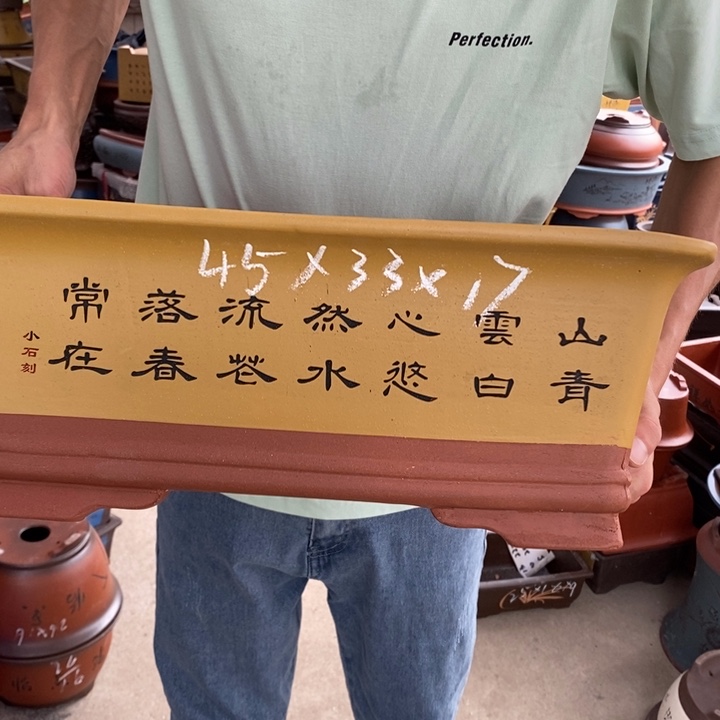 Perfection.
45x33x17
山青
雲白
心悠
然水
流花
落春
常在
小石刻